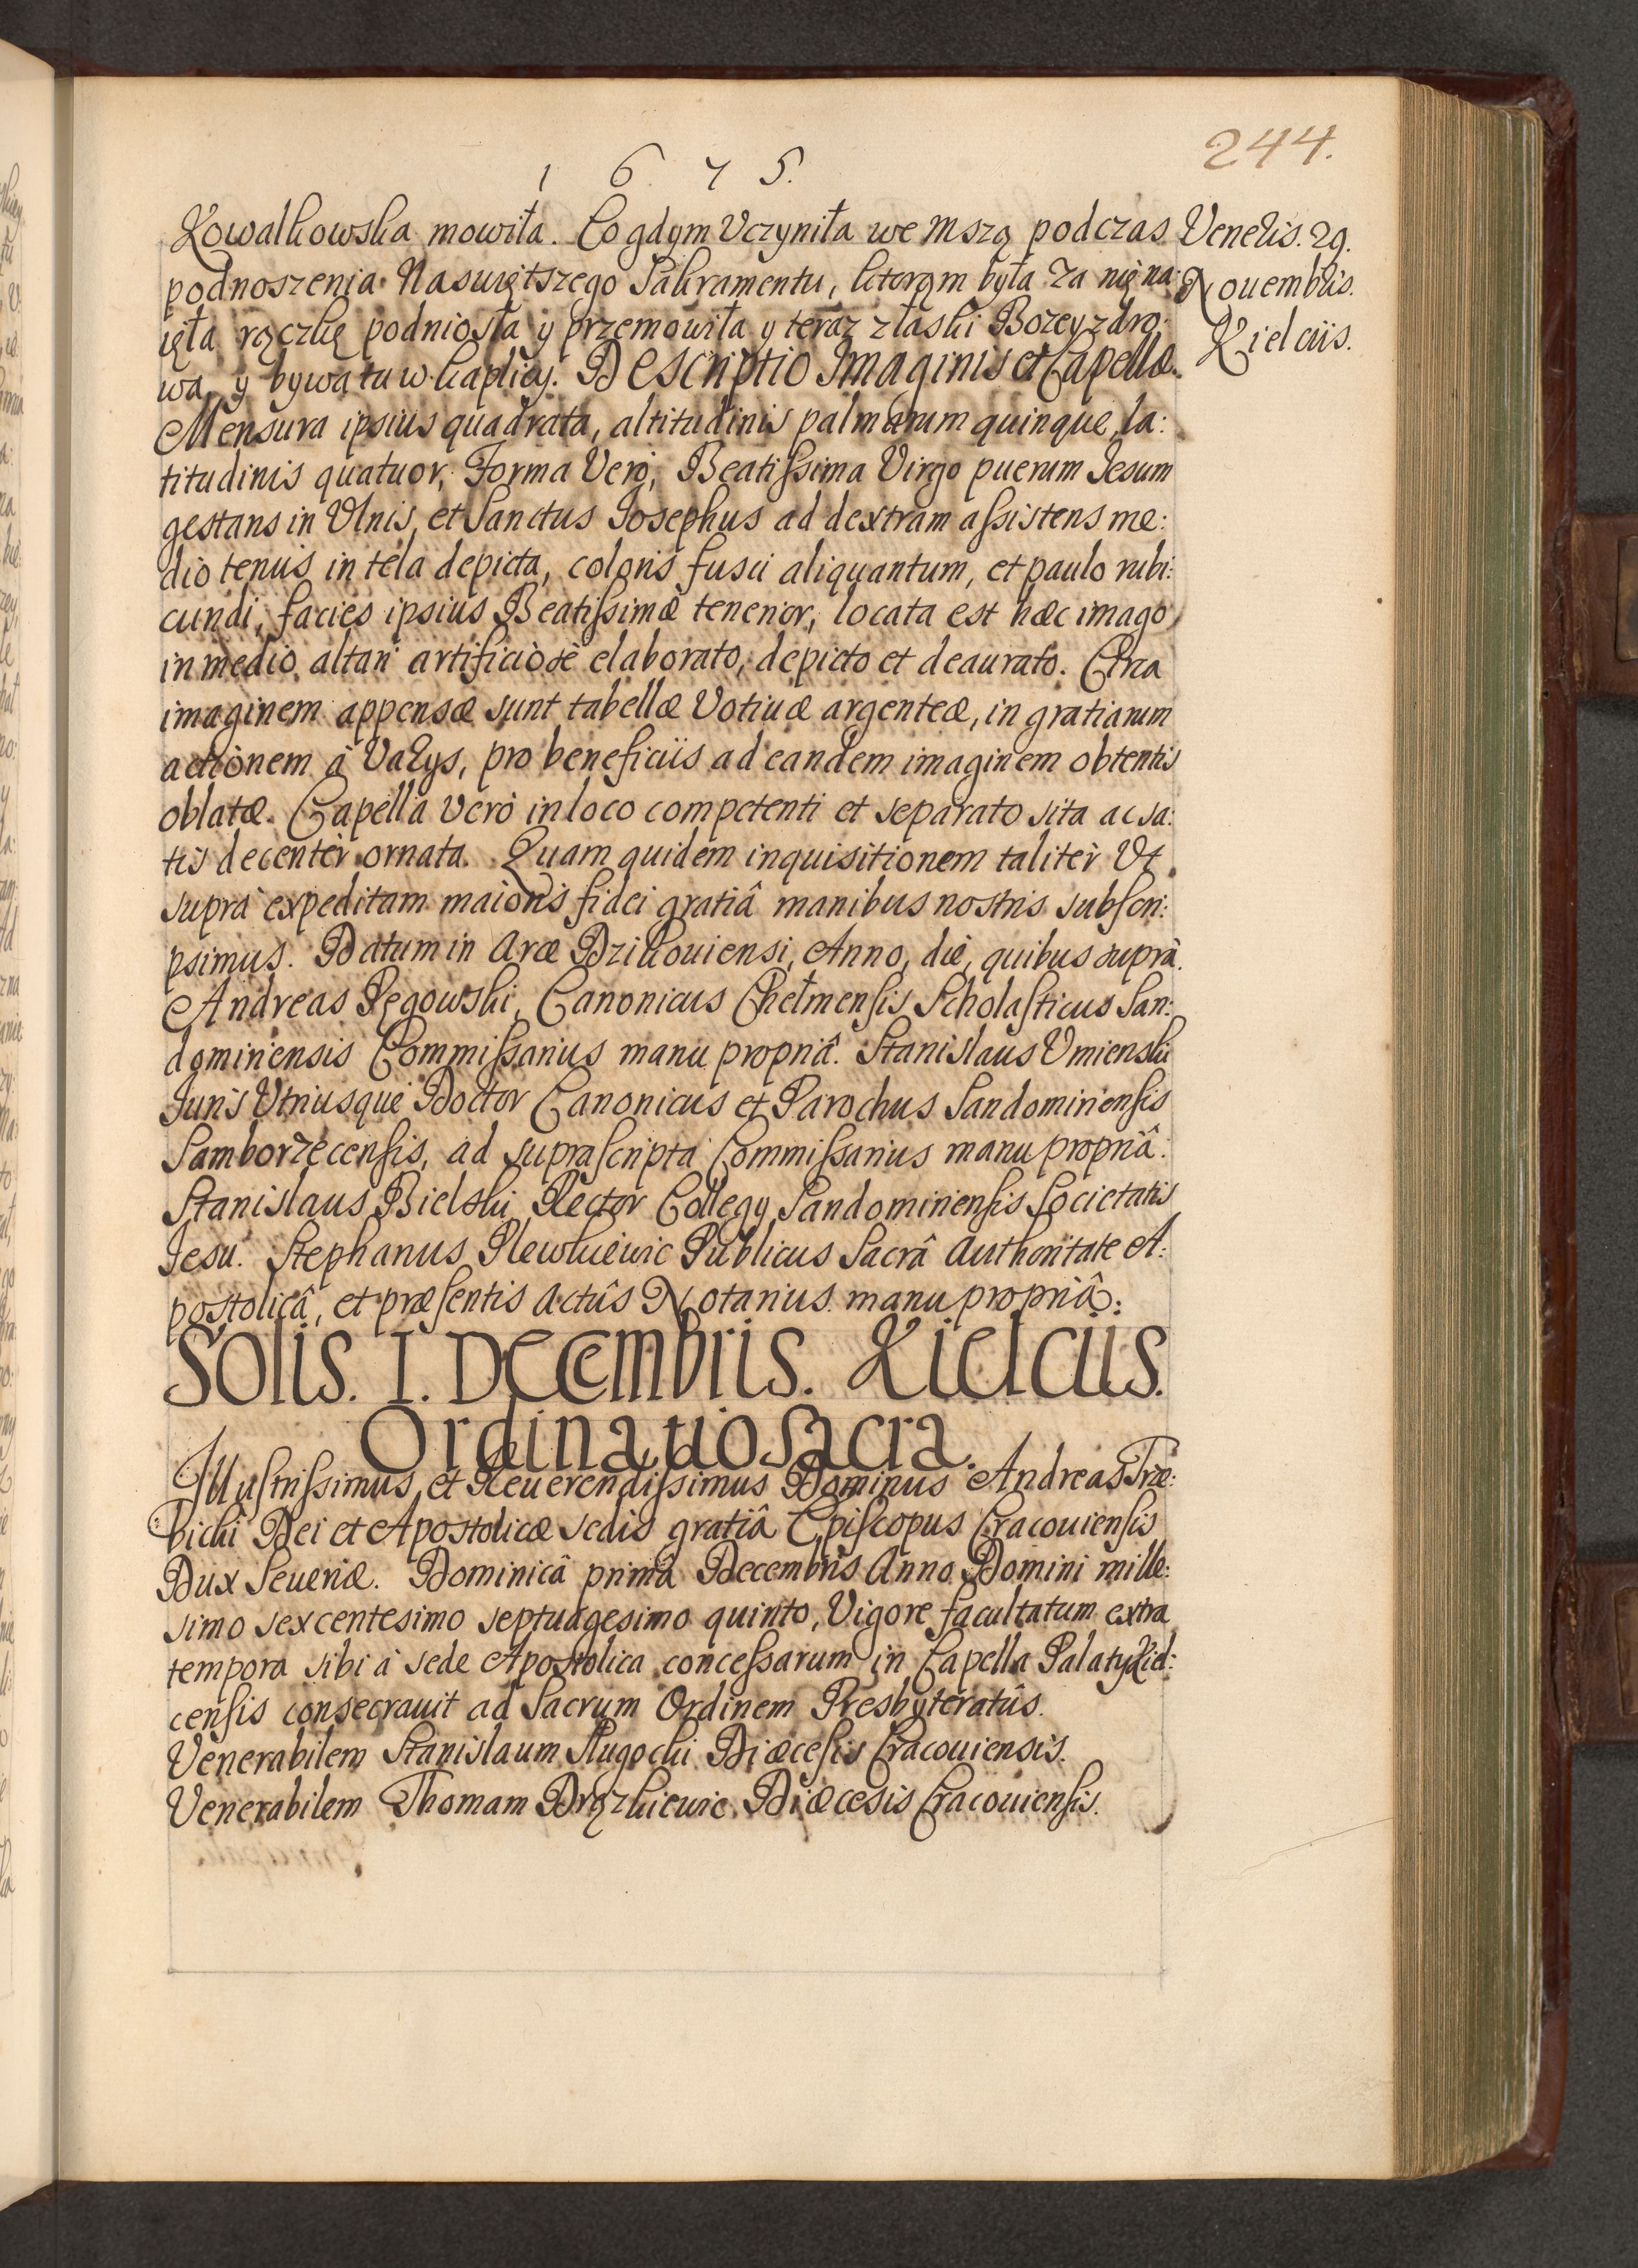 244.
1 6 7 5.
Kowalkowska mowiła. Co gdym Vczyniła we Mszą podczas
podnoszenia Naswiętszego Sakramentu, ktorąm była za nię na:
ięła rączkę podniosła y przemowiła y teraz z łaski Bozey zdro:
wa y bywa tu w kaplicy. Descriptio Imaginis et Capellæ.
Mensura ipsius quadrata, altitudinis palmarum quinque, la:
titudinis quatuor, Forma Verò, Beatissima Virgo puerum Jesum
gestans in Vlnis, et Sanctus Josephus ad dextram assistens me:
dio tenus in tela depicta, coloris fusci aliquantum, et paulo rubi:
cundi, facies ipsius Beatissimæ tenerior, locata est hæc imago
in medio altari artificiosè elaborato, depicto et deaurato. Circa
imaginem appensæ sunt tabellæ Votiuæ argenteæ, in gratiarum
actionem à Varys, pro beneficiis ad eandem imaginem obtentis
oblatæ. Capella verò in loco competenti et separato sita ac sa:
tis decenter ornata. Quam quidem inquisitionem taliter Vt
supra expeditam maioris fidei gratiâ manibus nostris subscri:
psimus. Datum in Arce Dzikouiensi, Anno, die, quibus suprà.
Andreas Pęgowski, Canonicus Chełmensis Scholasticus San:
domiriensis Commissarius manu propriâ. Stanislaus Vmienski
Juris Vtriusque Doctor Canonicus et Parochus Sandomiriensis
Samborzecensis, ad suprascripta Commissarius manu propriâ.
Stanislaus Bielski Rector Collegy Sandomiriensis Societatis
Jesu. Stephanus Plewkiewic Publicus Sacrâ Authoritate A:
postolicâ, et præsentis Actûs Notarius manu propriâ.
Solis. 1. Decembris. Kielciis.
Ordinatio Sacra.
Illustrissimus et Reuerendissimus Dominus Andreas Trze:
bicki Dei et Apostolicæ sedis gratiâ Episcopus Cracouiensis
Dux Seueriæ. Dominicâ primâ Decembris Anno Domini mille:
simo sexcentesimo septuagesimo quinto, Vigore facultatum extra
tempora sibi à sede Apostolica concessarum in Capella Palaty Kiel:
censis consecrauit ad Sacrum Ordinem Presbyteratûs.
Venerabilem Stanislaum Slugocki Diæcesis Cracouiensis.
Venerabilem Thomam Drązkiewic Diæcesis Cracouiensis.
Veneris. 29.
Nouembris.
Kielciis.